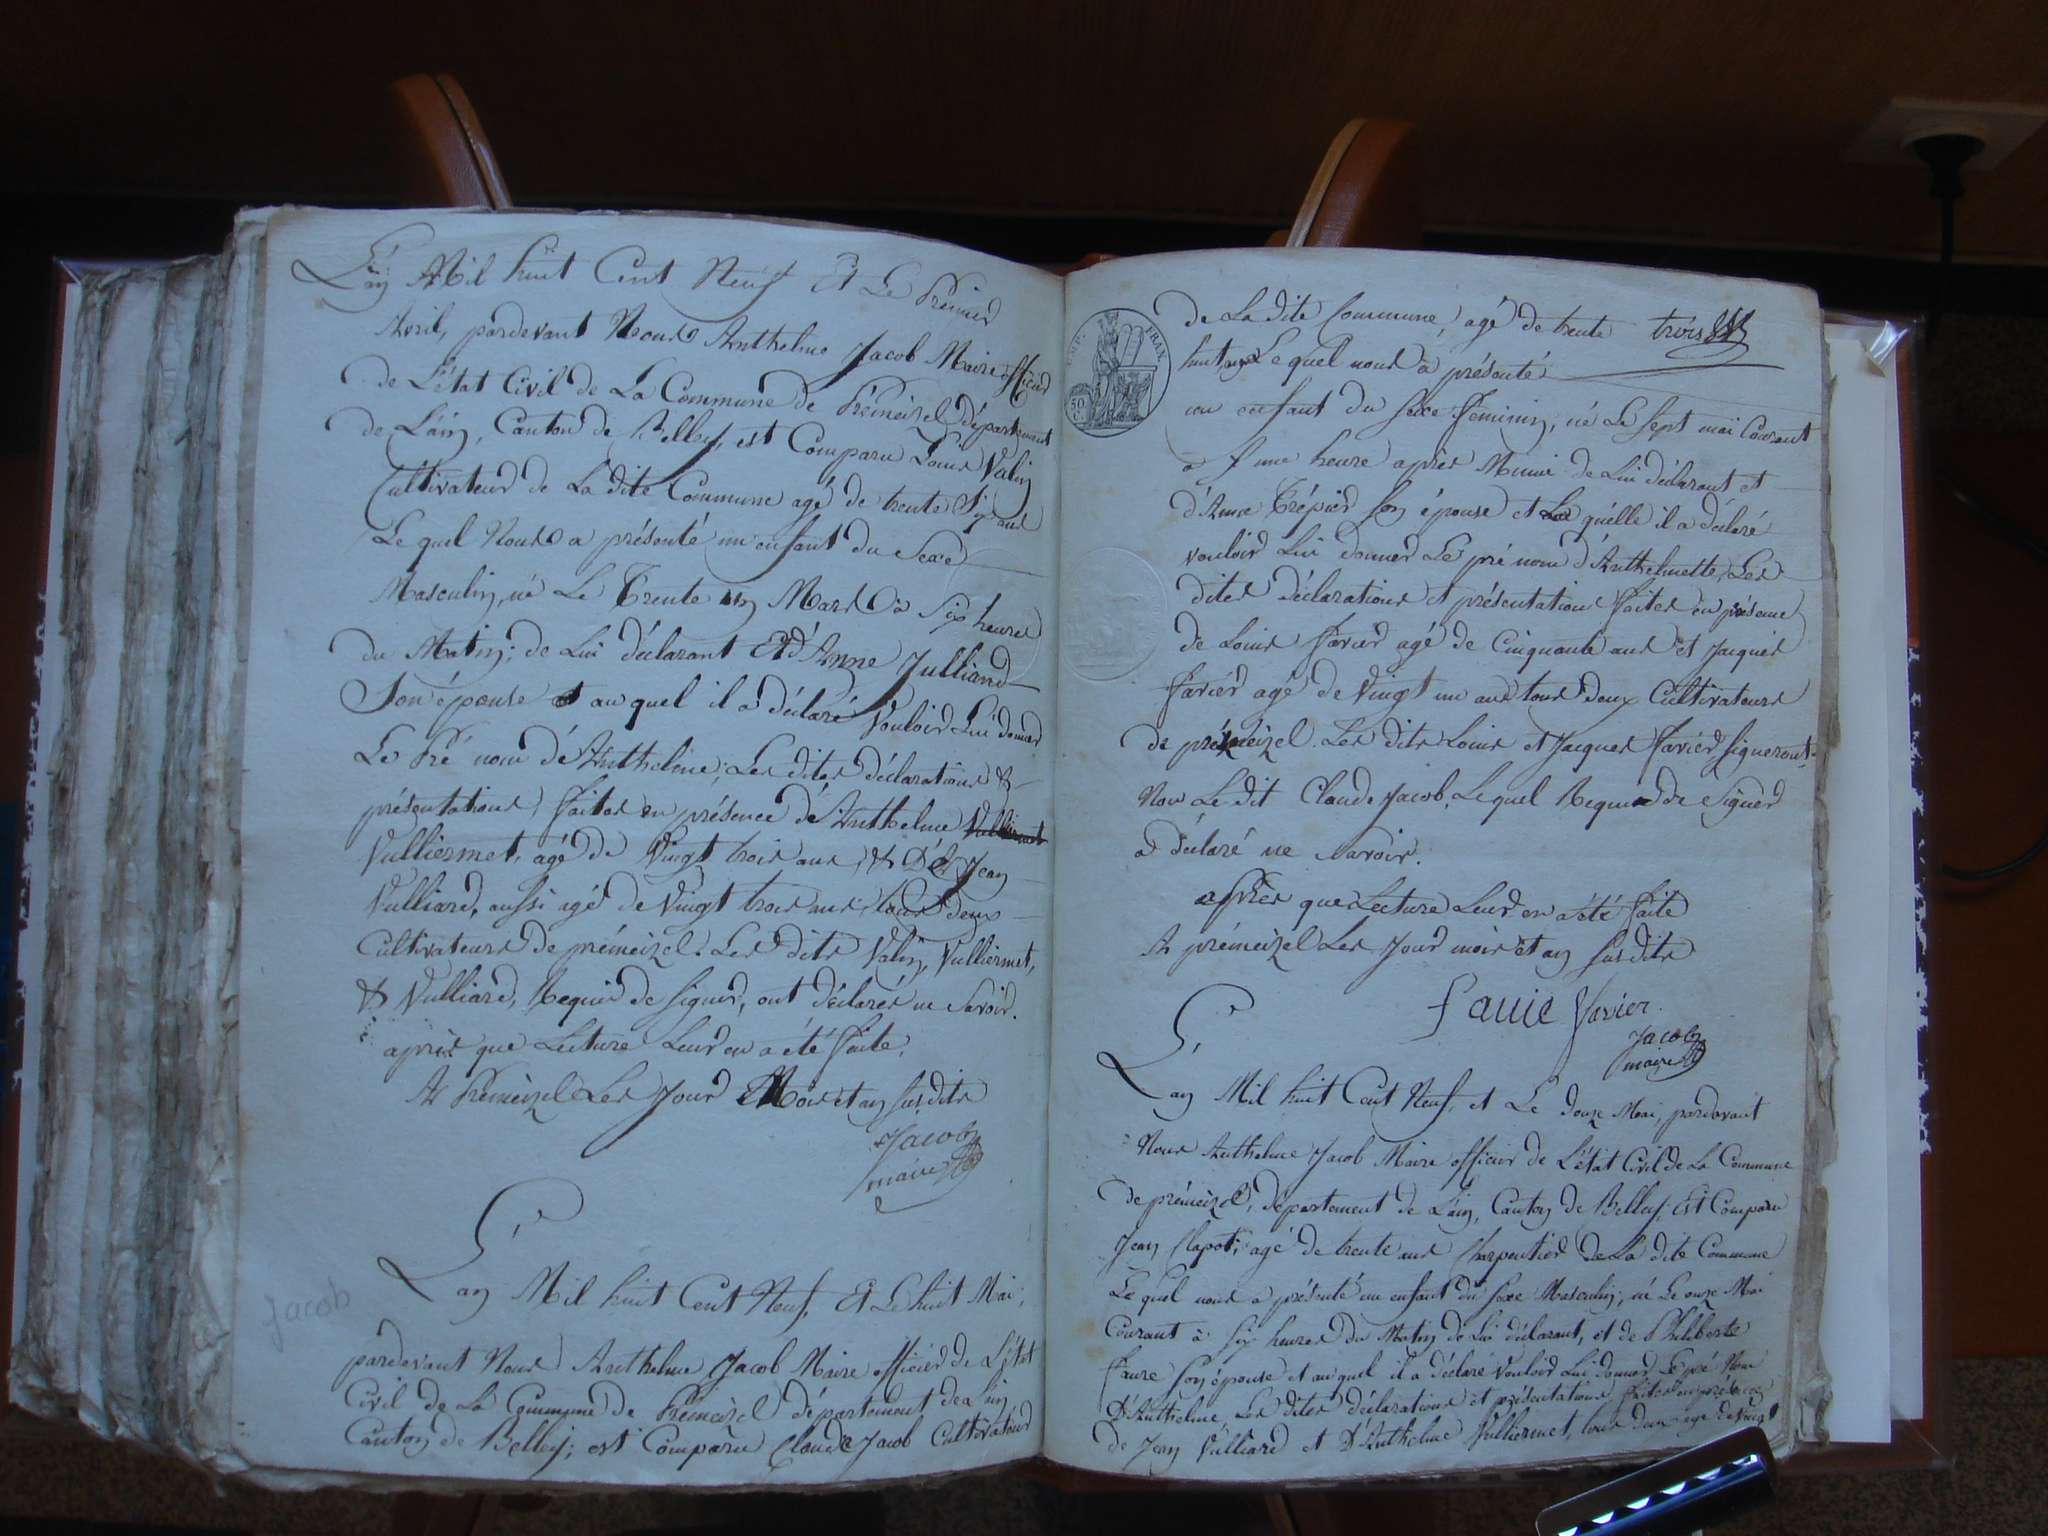 L'an Mil huit Cent Neuf Et Le Premier
Avril, pardevant Nous Anthelme Jacob Maire officier
de L'état Civil de La Commune de Prémeizel département
de L'ain, Canton de Belley, est Comparu Louis Valin
Cultivateur de La dite Commune agé de trente Six ans
Le quel Nous a présenté un enfant du Sexe
Masculin, né Le Trente un Mars à Six heures
du Matin; de Lui déclarant Et d'Anne Julliand
Son épouse et au quel il a déclaré Vouloir Lui donner
Le Pré nom d'Anthelme; Les dites déclarations &
présentations faites en présence d'Anthelme Vulliermet
Vulliermet, agé de Vingt trois ans, & de Jean
Vulliard, aussi agé de Vingt trois ans, tous deux
Cultivateurs de prémeizel. Les dits Valin, Vulliermet,
& Vulliard, Requis de signer, ont déclarés ne Savoir.
après que Lecture Leur en a été faite.
A Prémeizel Les Jour Mois et an susdits
Jacob
maire
L'an Mil huit Cent Neuf, Et Le huit Mai,
Jacob
pardevant Nous Anthelme Jacob Maire officier de L'état
Civil de La Commune de Prémeizel département de L'ain
Canton de Belley; est Comparu Claude Jacob Cultivateur
EMP. FRAN.
50 C.
de La dite Commune, agé de trente trois
huit ans Le quel nous a présenté
un enfant du sexe feminin, né Le sept mai Courant
a une heure après Minui de Lui déclarant et
d'Anne Trépier son épouse et La quelle il a déclaré
vouloir Lui donner Le pré nom d'Anthelmette, Les
dites déclarations et présentations faites en présence
de Louis favier agé de Cinquante ans et Jacques
favier agé de Vingt un ans tous deux Cultivateurs
de prémeizel. Les dits Louis et Jacques favier signeront,
Non Le dit Claude Jacob, Le quel Requis de Signer
a déclaré ne savoir.
après que Lecture Leur en a été faite
A prémeizel Les Jour mois et an susdits
favie favier.
Jacob
maire
L'an Mil huit Cent Neuf, et Le douze Mai, pardevant
Nous Anthelme Jacob Maire officier de L'état Civil de La Commune
de prémeizel, département de L'ain, Canton de Belley; Est Comparu
Jean Clapot, agé de trente ans Charpentier de La dite Commune
Le quel nous a présenté un enfant du sexe Masculin, né Le onze Mai
Courant à Six heures du Matin de Lui déclarant, et de Philiberte
faure son épouse et au quel il a déclaré vouloir Lui donner Le pré Nom
D'Anthelme, Les dites déclarations et présentations faites en présence
de Jean Vulliard et D'Anthelme Vulliermet, tous d'un age de vingt